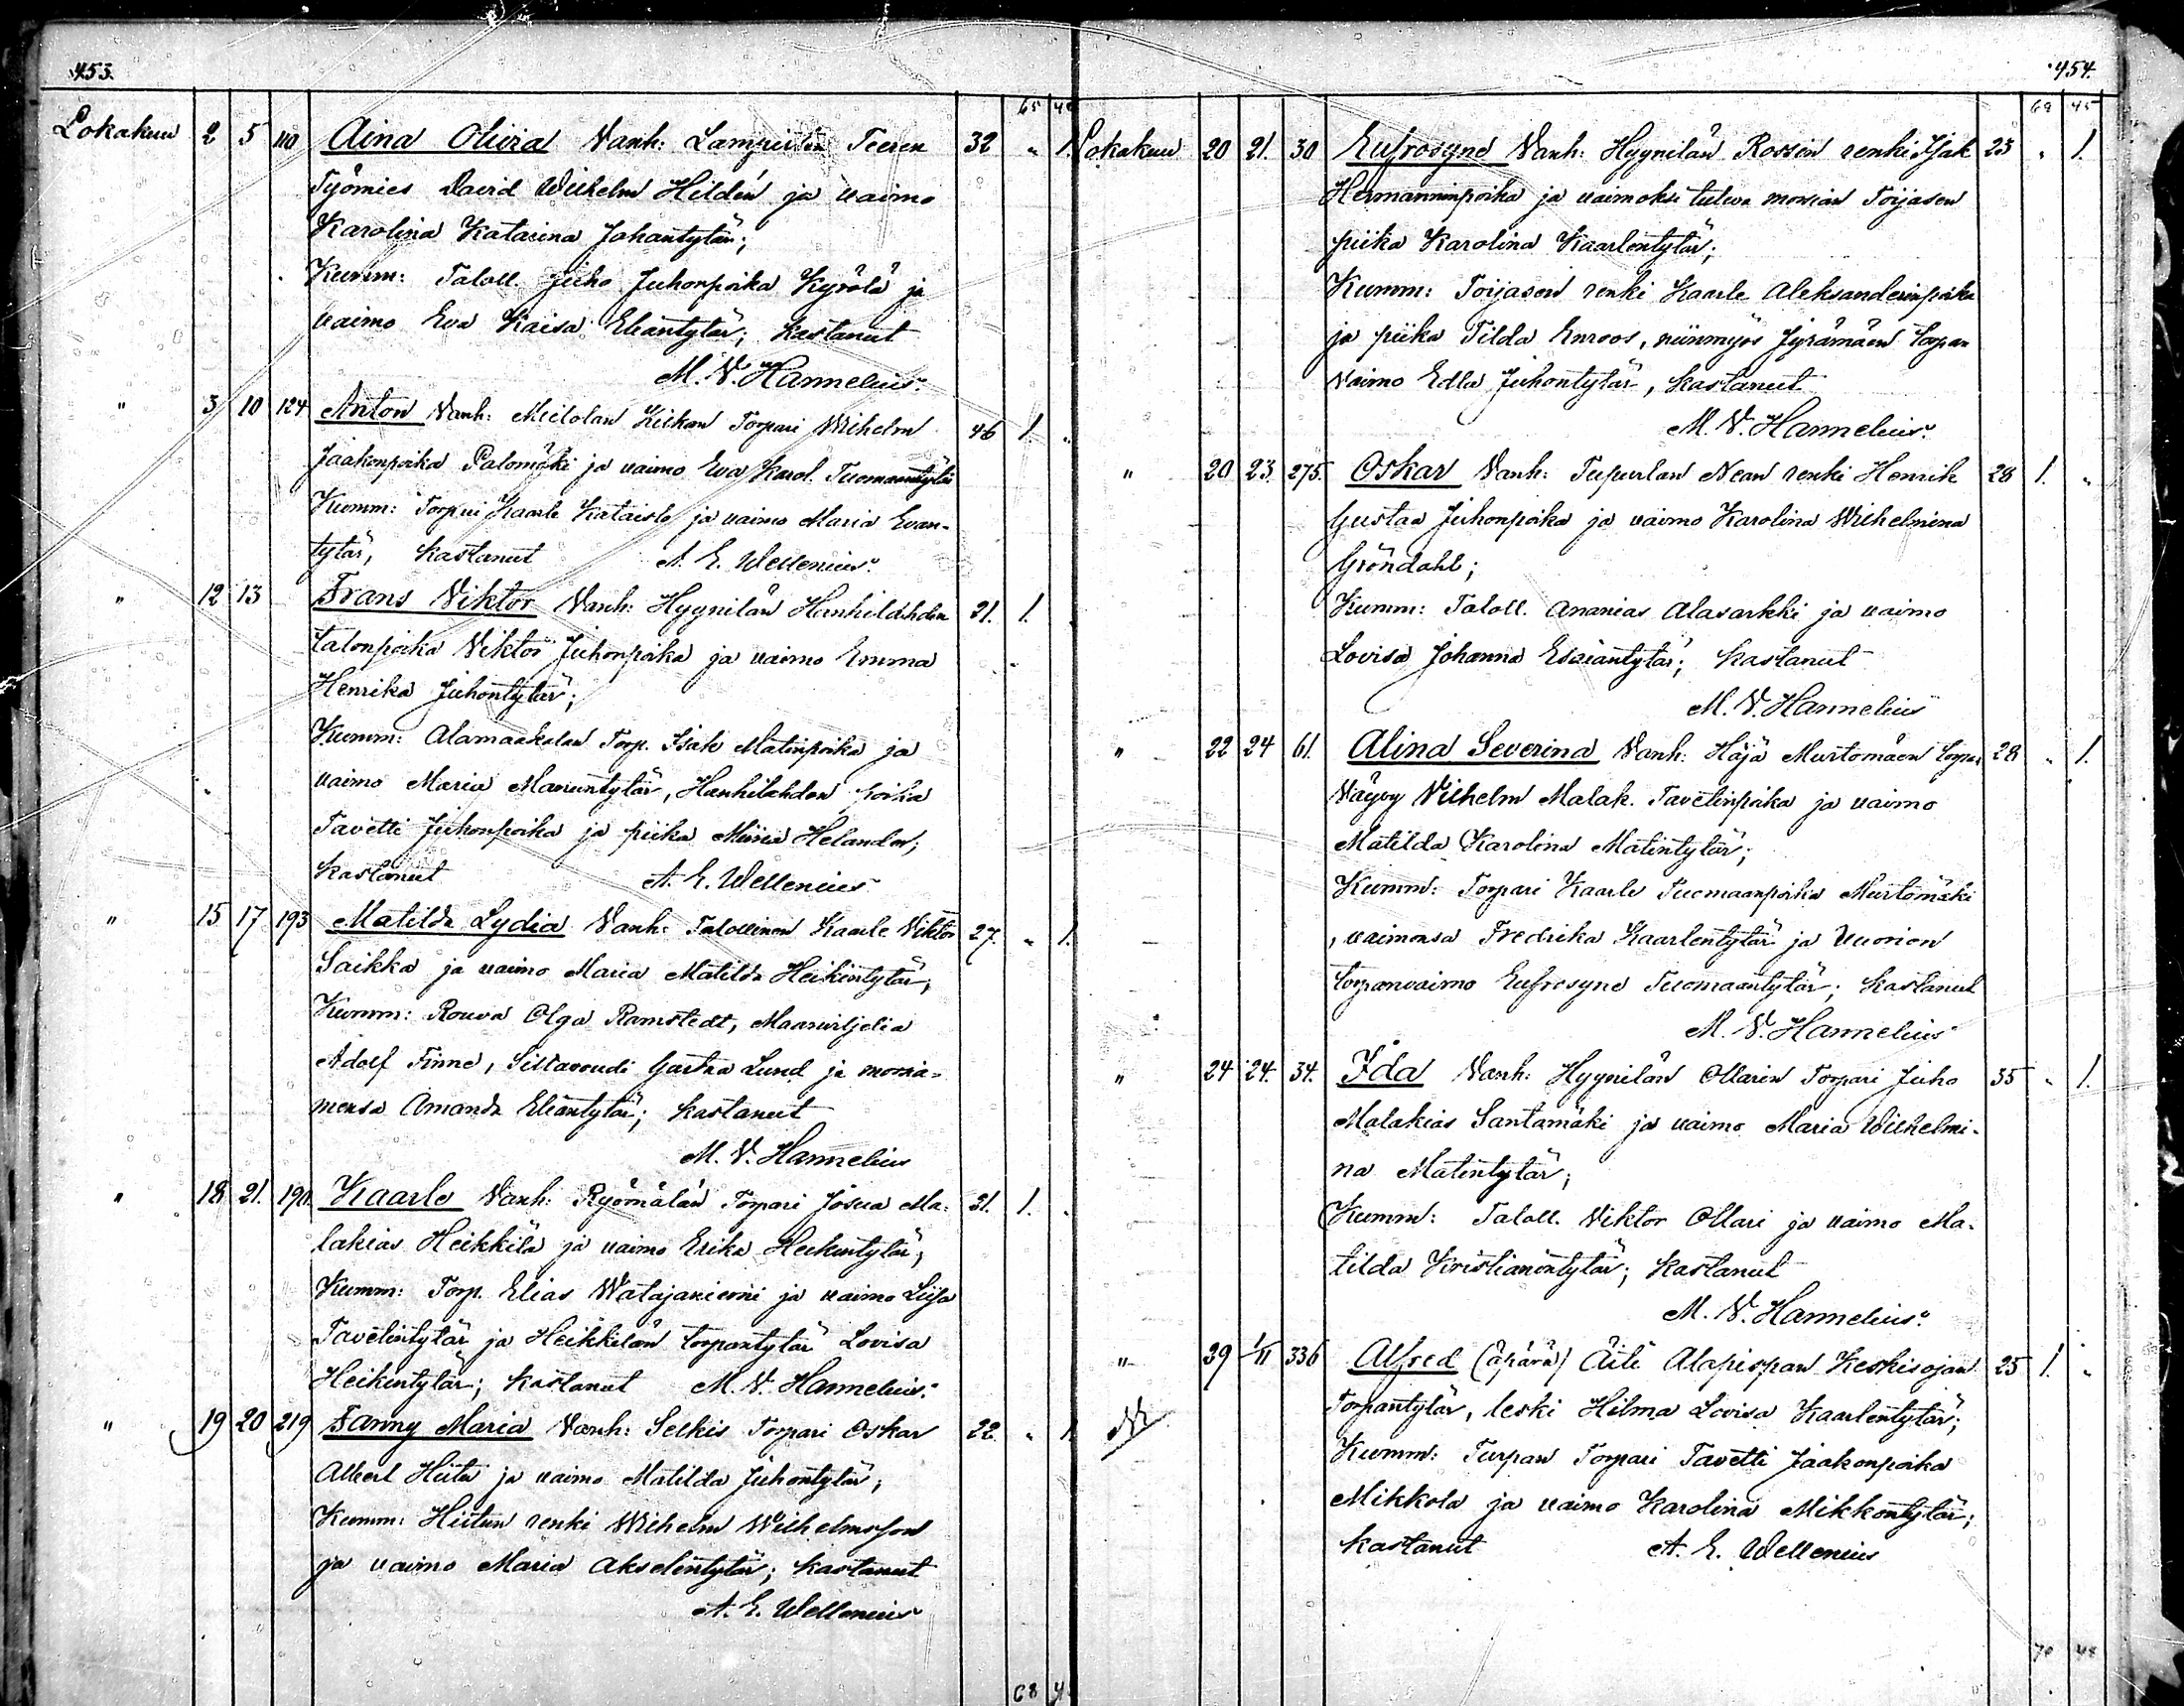 453.
65
Lokakuu 2 5 110 Aina Olivia Vanh: Lampeisten Teeren 32 " 1.
Työmies David Wilhelm Hildén ja vaimo
Karolina Katarina Johantytär;
Kumm: Taloll. Juho Juhonpoika Kyrölä ja
vaimo Eva Kaisa Eliantytär; kastanut
M. V. Hannelius.
" 3 10 124 Anton Vanh: Meilolan Torpari Wilhelm 46 1. "
Jaakonpoika Palomäki ja vaimo Eva Karol. Tuomaantytär
Kumm: Torpari Kaarle Kataisto ja vaimo Maria Evan-
tytär, kastanut A. E. Wellenius.
" 12 13 Frans Viktor Vanh: Hyynilän Hanhilahden 21. 1.
talonpoika Viktor Juhonpoika ja vaimo Emma
Henrika Juhontytär;
Kumm: Alamaakalan Torp. Isak Matinpoika ja
vaimo Maria Manuntytär, Hanhilahden poika
Tavetti Juhonpoika ja piika Miina Helander;
kastanut A. E. Wellenius
" 15 17 193 Matilda Lydia Vanh: Talollinen Kaarle Viktor 27. " 1.
Saikka ja vaimo Maria Matilda Heikintytär,
Kumm: Rouva Olga Ramstedt, Maanviljeliä
Adolf Finne, Siltavouti Gustaa Lund ja morsia-
mensa Amanda Eliantytär; kastanut
M. V. Hannelius
" 18 21. Kaarlo Vanh: Ryömälän Torpari Josua Ma- 31. 1. "
lakias Heikkilä ja vaimo Erika Heikintytär;
Kumm: Torp. Elias Watajaniemi ja vaimo Liisa
Tavetintytär ja Heikkilän torpantytär Lovisa
Heikintytär; kastanut M. V. Hannelius.
" 19 20 219 Fanny Maria Vanh: Selkis Torpari Oskar 22. " 1
Albert Hiitu ja vaimo Matilda Juhontytär;
Kumm: Hiitun renki Wilhelm Wilhelmsson
ja vaimo Maria Akselintytär; kastanut
A. E. Wellenius
68
454.
69 45
Lokakuu 20 21. 30 Eufrosyne Vanh: Hyynilän Rossin renki Isak 23 " 1.
Hermanninpoika ja vaimoksi tuleva morsian Toijasen
piika Karolina Kaarlentytär;
Kumm: Toijasen renki Kaarle Aleksanderinpoika
ja piika Tilda Enroos, niinmyös Jyrämäen torpan
vaimo Edla Juhontytär, kastanut
M. V. Hannelius.
" 20 23. 275. Oskar Vanh: Tupurlan Nean renki Henrik 28 1. "
Gustaa Juhonpoika ja vaimo Karolina Wilhelmina
Gröndahl;
Kumm: Taloll. Ananias Alasarkki ja vaimo
Lovisa Johanna Esaiantytär; kastanut
M. V. Hannelius
" 22 24 61. Alina Severina Vanh: Häjä Murtomäen torpan 28 " 1.
Vävy Vilhelm Malak. Tavetinpoika ja vaimo
Matilda Karolina Matintytär;
Kumm: Torpari Kaarle Tuomaanpoika Murtomäki
, vaimonsa Fredrika Kaarlentytär ja Vuorion
torpanvaimo Eufrosyne Tuomaantytär; kastanut
M. V. Hannelius
" 24 24. 34. Ida Vanh: Hyynilän Ollarin Torpari Juho 35 " 1.
Malakias Santamäki ja vaimo Maria Wilhelmi-
na Matintytär;
Kumm: Taloll. Viktor Ollari ja vaimo Ma-
tilda Kristianintytär; kastanut
M. V. Hannelius.
" 29 1/11 336 Alfred (äpärä) Äiti Alapispan Keskisojan 25 1. "
Torpantytär, leski Hilma Lovisa Kaarlentytär;
Kumm: Turpan Torpari Tavetti Jaakonpoika
Mikkola ja vaimo Karolina Mikkontytär;
kastanut A. E. Wellenius
70 48